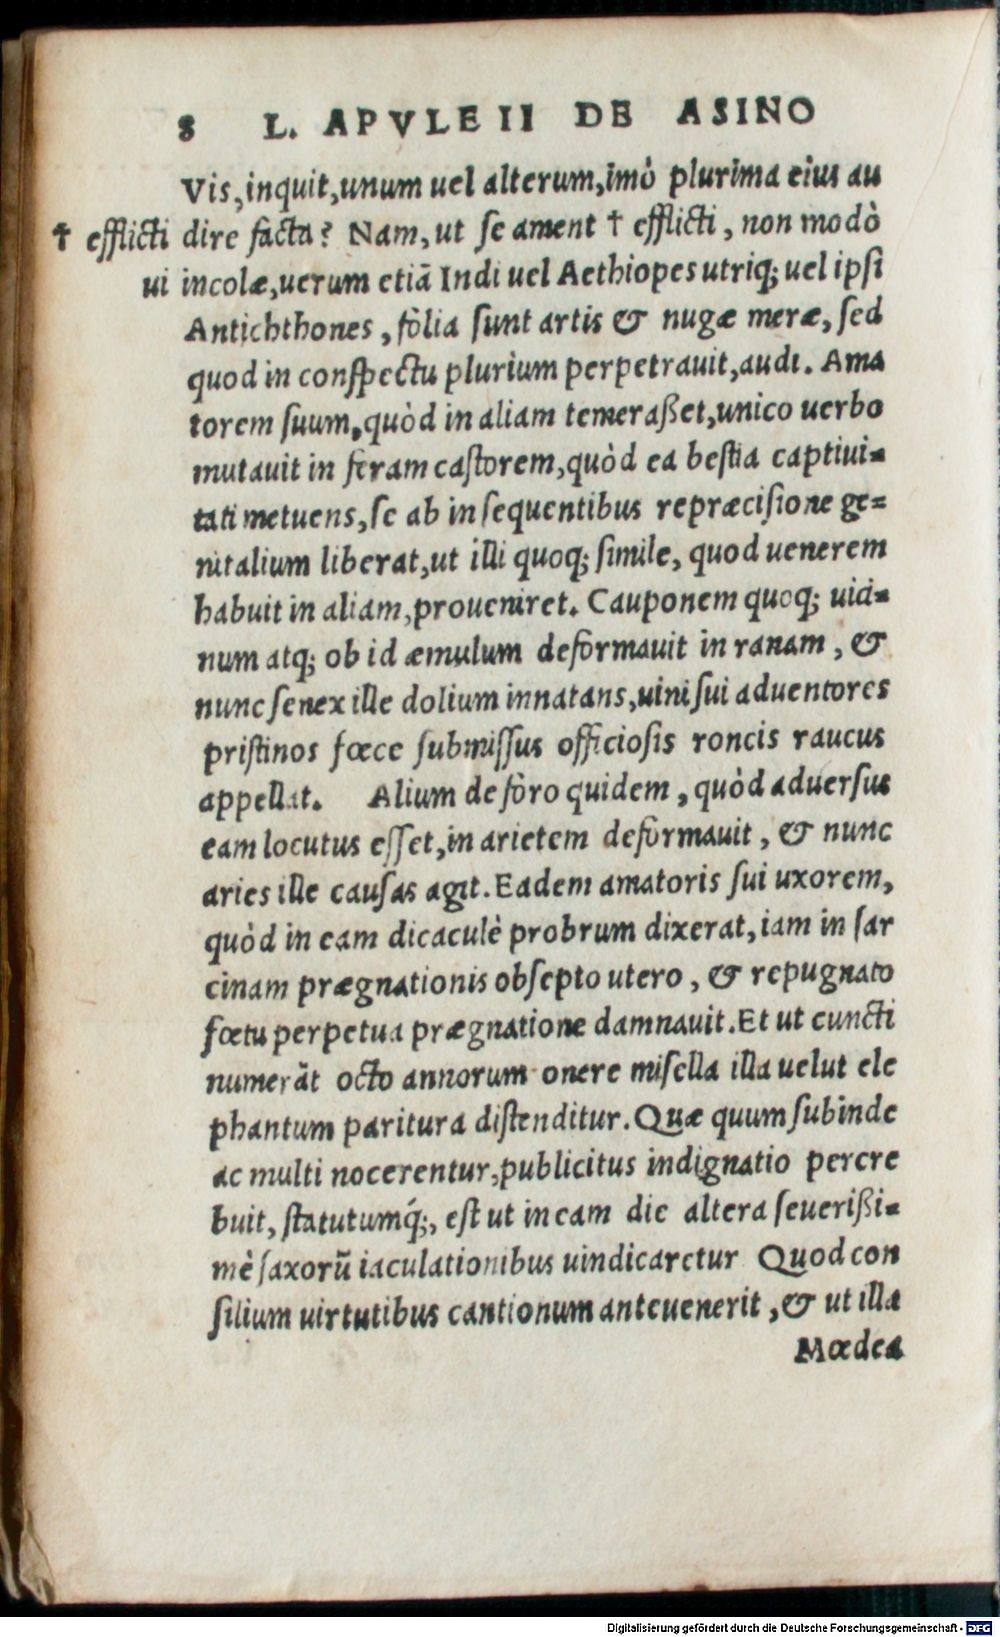 8 L. APVLEII DE ASINO
Vis, inquit, unum uel alterum, imò plurima eius au
† efflicti dire facta? Nam, ut se ament † efflicti, non modò
ui incolæ, uerum etiā Indi uel Aethiopes utriq; uel ipsi
Antichthones, fòlia sunt artis & nugæ meræ, sed
quod in conspectu plurium perpetrauit, audi. Ama
torem suum, quòd in aliam temeraßet, unico uerbo
mutauit in feram castorem, quòd ea bestia captiui-
tati metuens, se ab insequentibus repræcisione ge-
nitalium liberat, ut illi quoq; simile, quod uenerem
habuit in aliam, proueniret. Cauponem quoq; uici-
num atq; ob id æmulum deformauit in ranam, &
nunc senex ille dolium innatans, uini sui aduentores
pristinos fœce submissus officiosis roncis raucus
appellat. Alium de fòro quidem, quòd aduersus
eam locutus esset, in arietem deformauit, & nunc
aries ille causas agit. Eadem amatoris sui uxorem,
quòd in eam dicaculè probrum dixerat, iam in sar
cinam prægnationis obsepto utero, & repugnato
fœtu perpetua prægnatione damnauit. Et ut cuncti
numerāt octo annorum onere misella illa uelut ele
phantum paritura distenditur. Quæ quum subinde
ac multi nocerentur, publicitus indignatio percre
buit, statutumq́;, est ut in eam die altera seuerißi-
mè saxorū iaculationibus uindicaretur Quod con
silium uirtutibus cantionum anteuenerit, & ut illa
Mœdea
Digitalisierung gefördert durch die Deutsche Forschungsgemeinschaft - DFG